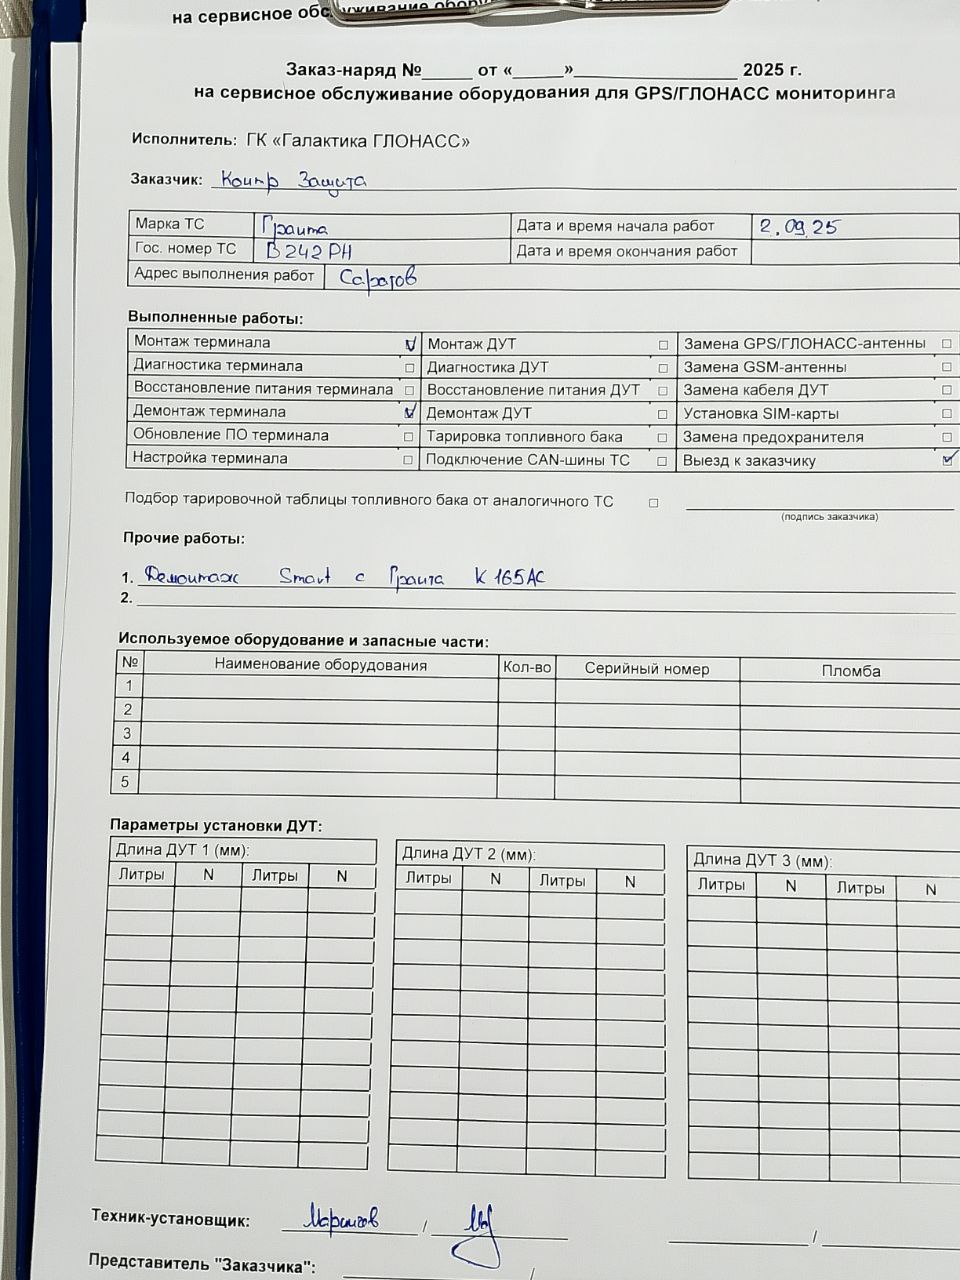 на сервисное обслуживание
Заказ-наряд №_____ от «_____»________________ 2025 г.
на сервисное обслуживание оборудования для GPS/ГЛОНАСС мониторинга
Исполнитель: ГК «Галактика ГЛОНАСС»
Заказчик: Контр Защита
Марка ТС Гранта Дата и время начала работ 2.09.25
Гос. номер ТС В242РН Дата и время окончания работ
Адрес выполнения работ Саратов
Выполненные работы:
Монтаж терминала ☑ Монтаж ДУТ □ Замена GPS/ГЛОНАСС-антенны □
Диагностика терминала □ Диагностика ДУТ □ Замена GSM-антенны □
Восстановление питания терминала □ Восстановление питания ДУТ □ Замена кабеля ДУТ □
Демонтаж терминала ☑ Демонтаж ДУТ □ Установка SIM-карты □
Обновление ПО терминала □ Тарировка топливного бака □ Замена предохранителя □
Настройка терминала □ Подключение CAN-шины ТС □ Выезд к заказчику ☑
Подбор тарировочной таблицы топливного бака от аналогичного ТС □
(подпись заказчика)
Прочие работы:
1. Демонтаж Smart с Гранта К165АС
2.
Используемое оборудование и запасные части:
№ Наименование оборудования Кол-во Серийный номер Пломба
1
2
3
4
5
Параметры установки ДУТ:
Длина ДУТ 1 (мм): Длина ДУТ 2 (мм): Длина ДУТ 3 (мм):
Литры N Литры N Литры N Литры N Литры N Литры N
Техник-установщик: / /
Представитель "Заказчика": /